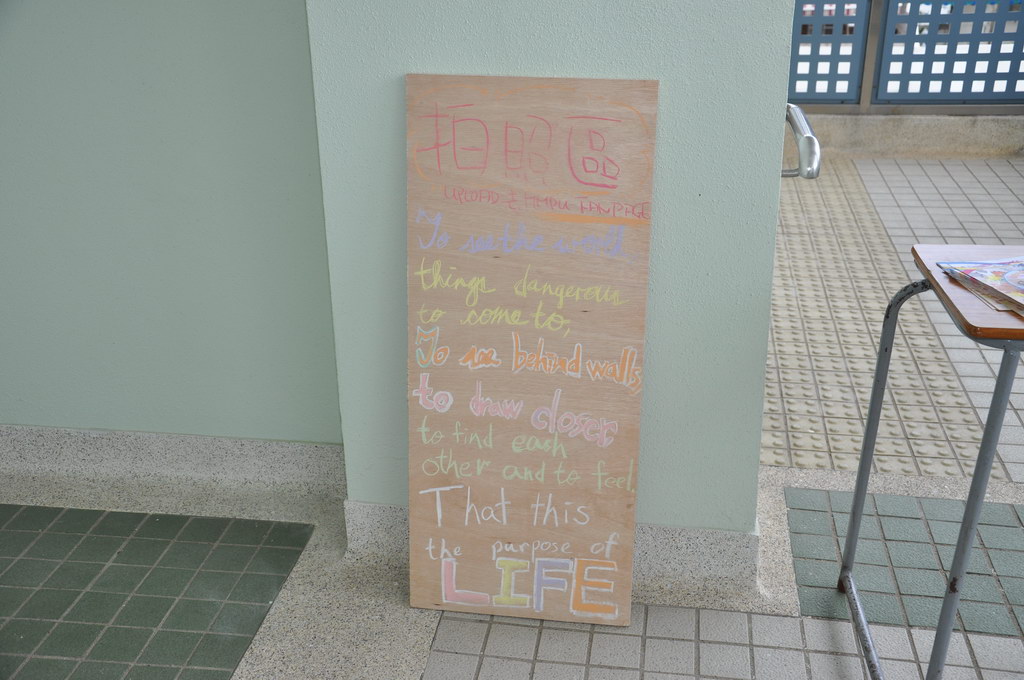 拍照區
UPLOAD 至 FANPAGE
To see the world
things dangerous
to come to,
To see behind walls,
to draw closer
to find each
other and to feel.
That this
the purpose of
LIFE